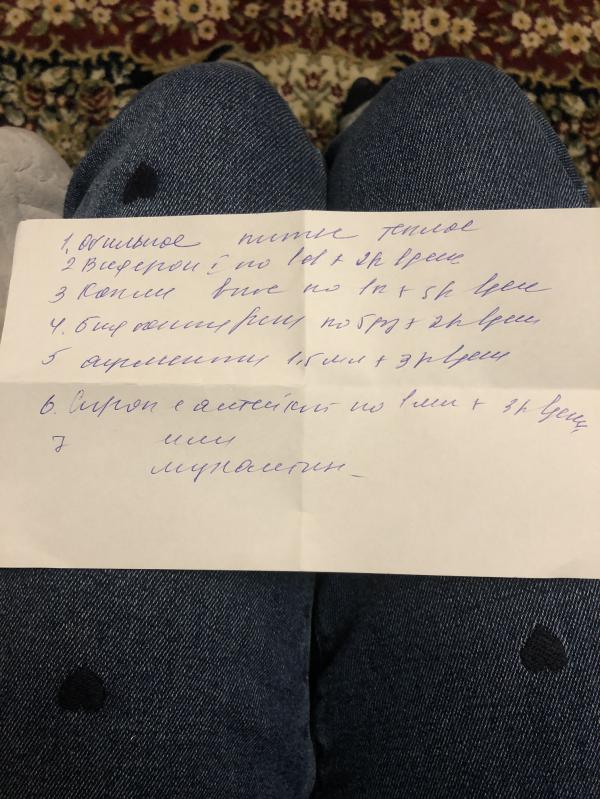 1. Обильное питье теплое
2 Виферон 1 по 1 + 2р в день
3 Капли в нос по 1к + 5р в день
4. по 5 + 2р в день
5 1.5 мл + 3р в день
6. Сироп с алтейкой по 1 мл + 3р в день
7 или
мукалтин